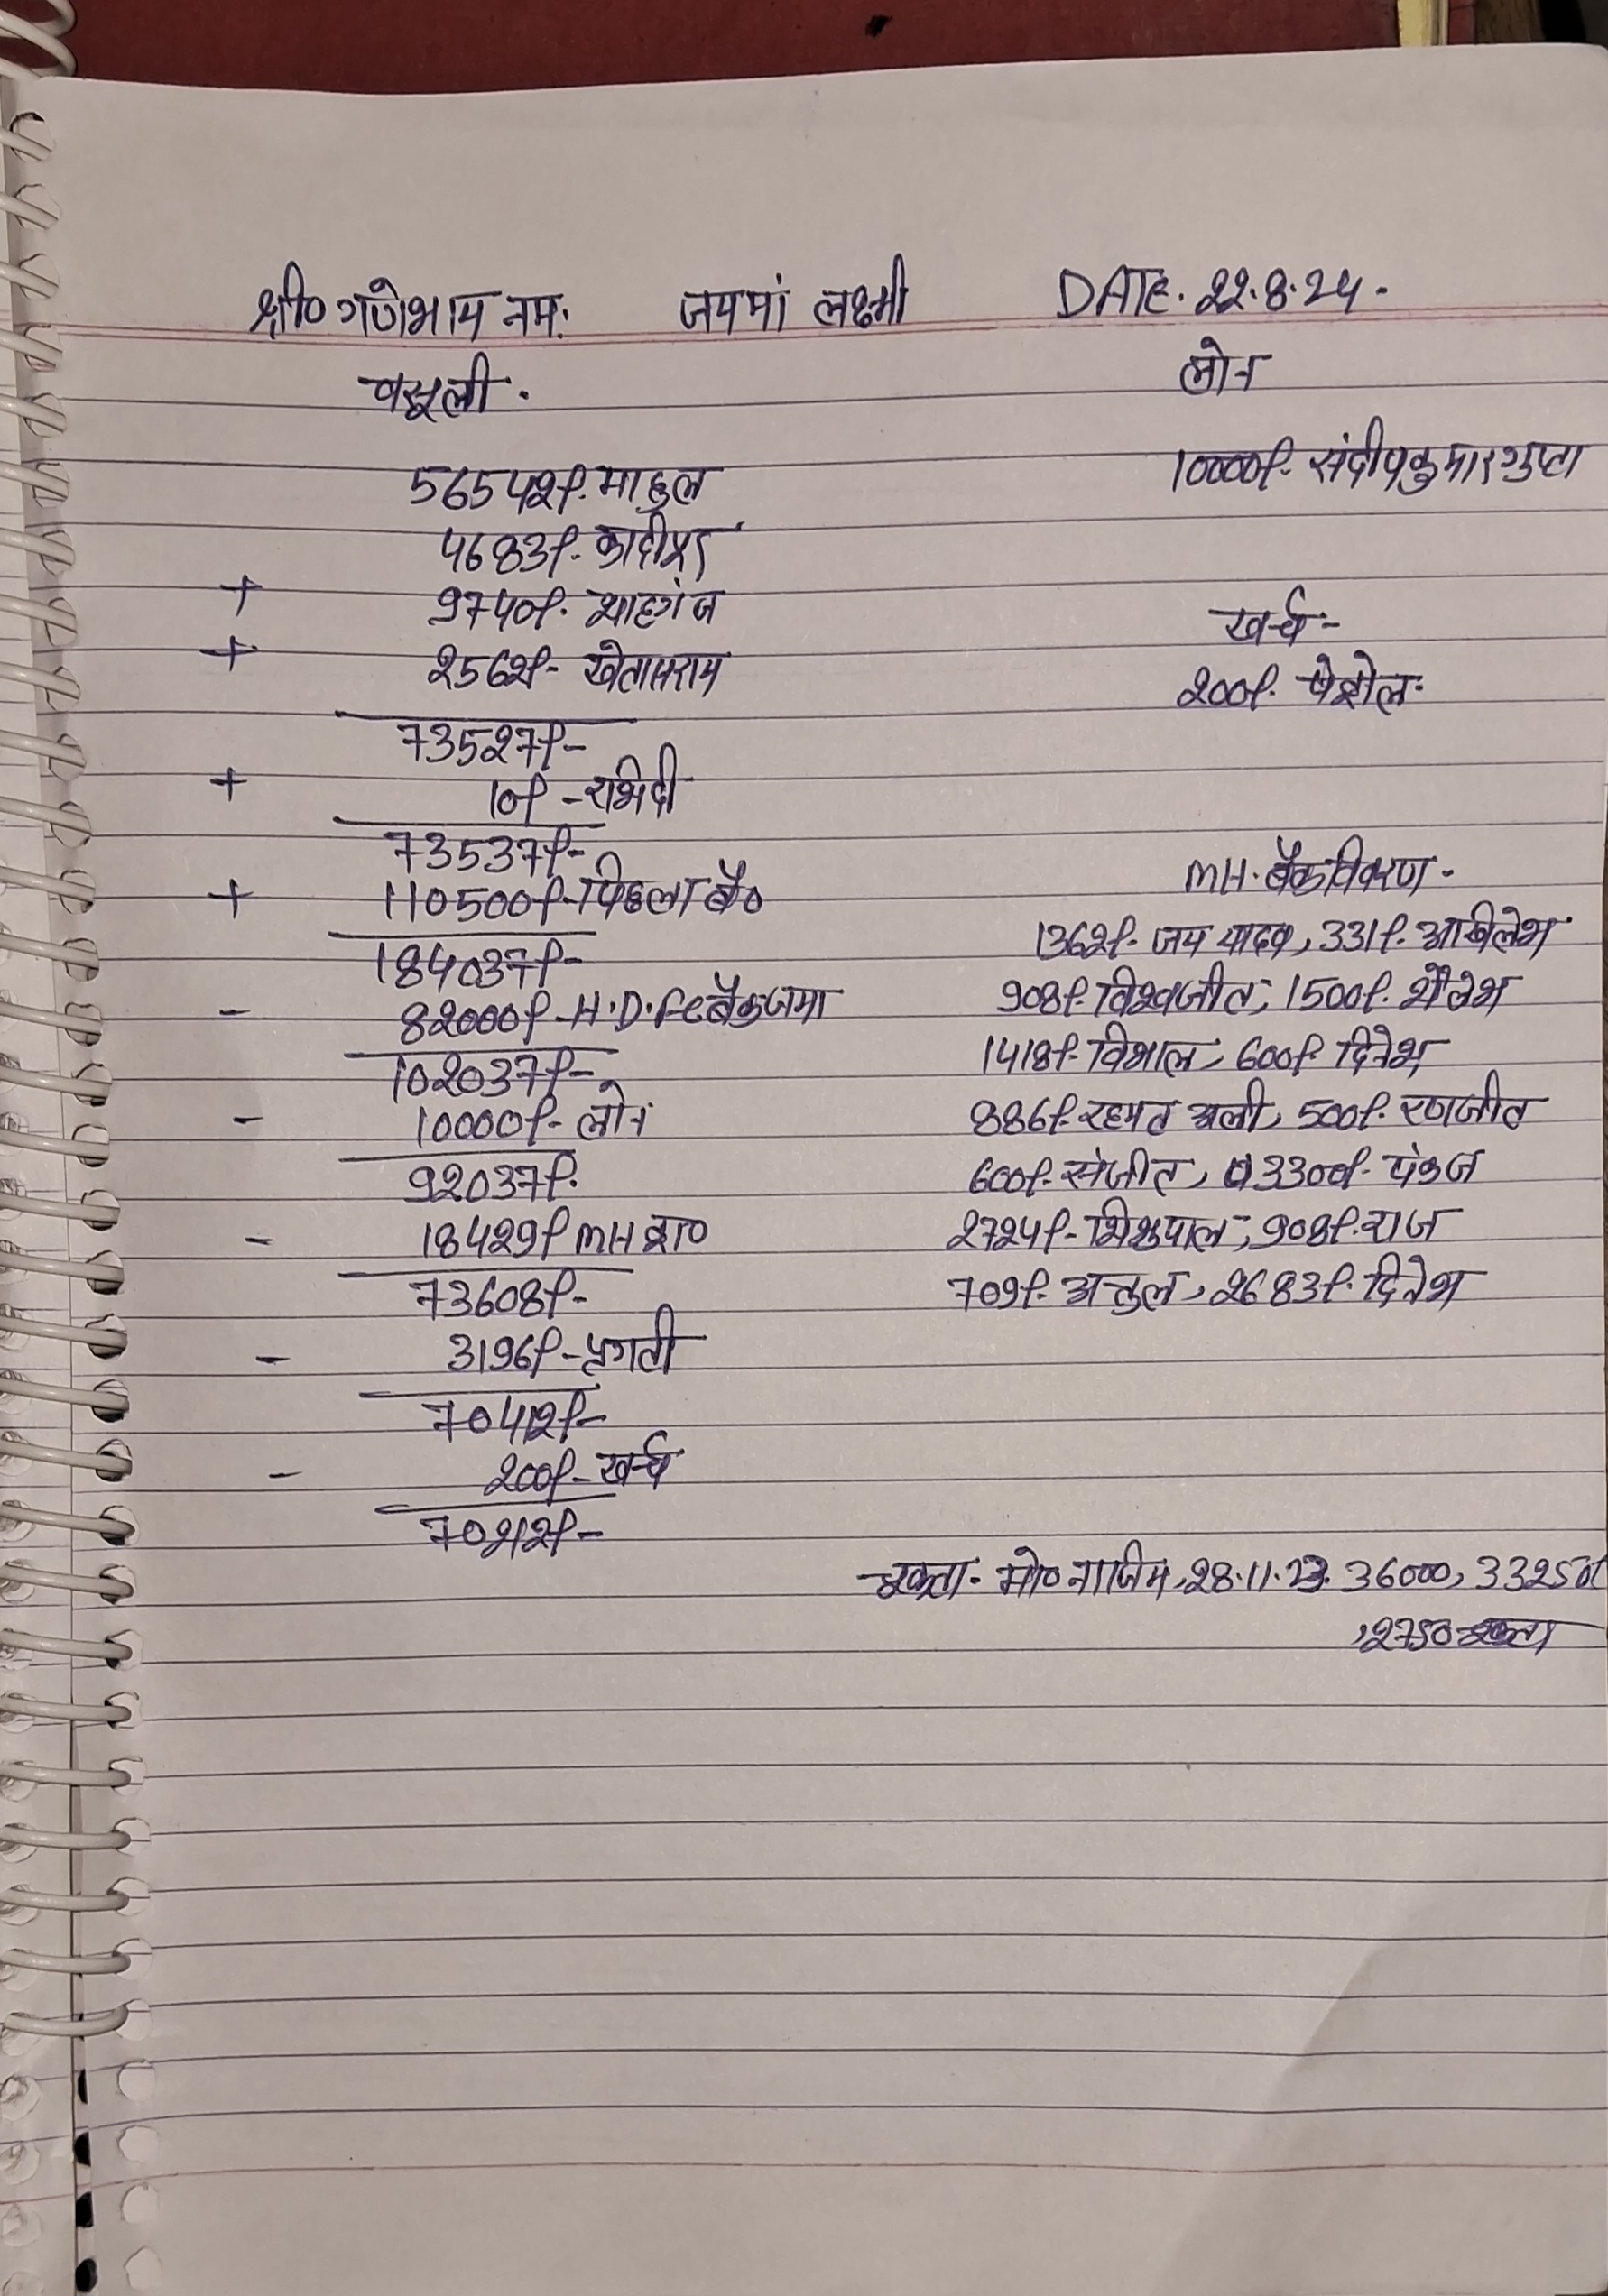 श्री० गणेशाय नमः जय मां लक्ष्मी DATE. 22.8.24.
वसूली. लोन
56542/-. माहुल 10000/-. संदीप कुमार गुप्ता
4683/-. कादीपुर
+ 9740/-. शाहगंज खर्च-
+ 2562/- खेतासराय 200/-. पेट्रोल-
73527/-
+ 10/- - रसीदी
73537/-
+ 110500/- - पिछला बै० MH. बैंक विवरण.
184037/- 1362/-. जय यादव, 331/-. अखिलेश
- 82000/- - H.D.Fc बैंक जमा 908/-. विश्वजीत, 1500/-. शैलेश
102037/- 1418/-. विशाल, 600/-. दिनेश
- 10000/- - लोन 886/-. रहमत अली, 500/-. रणजीत
92037/-. 600/-. संजीत, 3300/-. पंकज
- 18429/- MH द्वा० 2724/- - शिशुपाल, 908/-. राज
73608/- 709/-. अतुल, 2683/-. दिनेश
- 3196/- - प्रगती
70412/-
- 200/- - खर्च
70212/-
चुकता - मो० नाजिम, 28.11.23. 36000, 33250/-
, 2750 चुकता